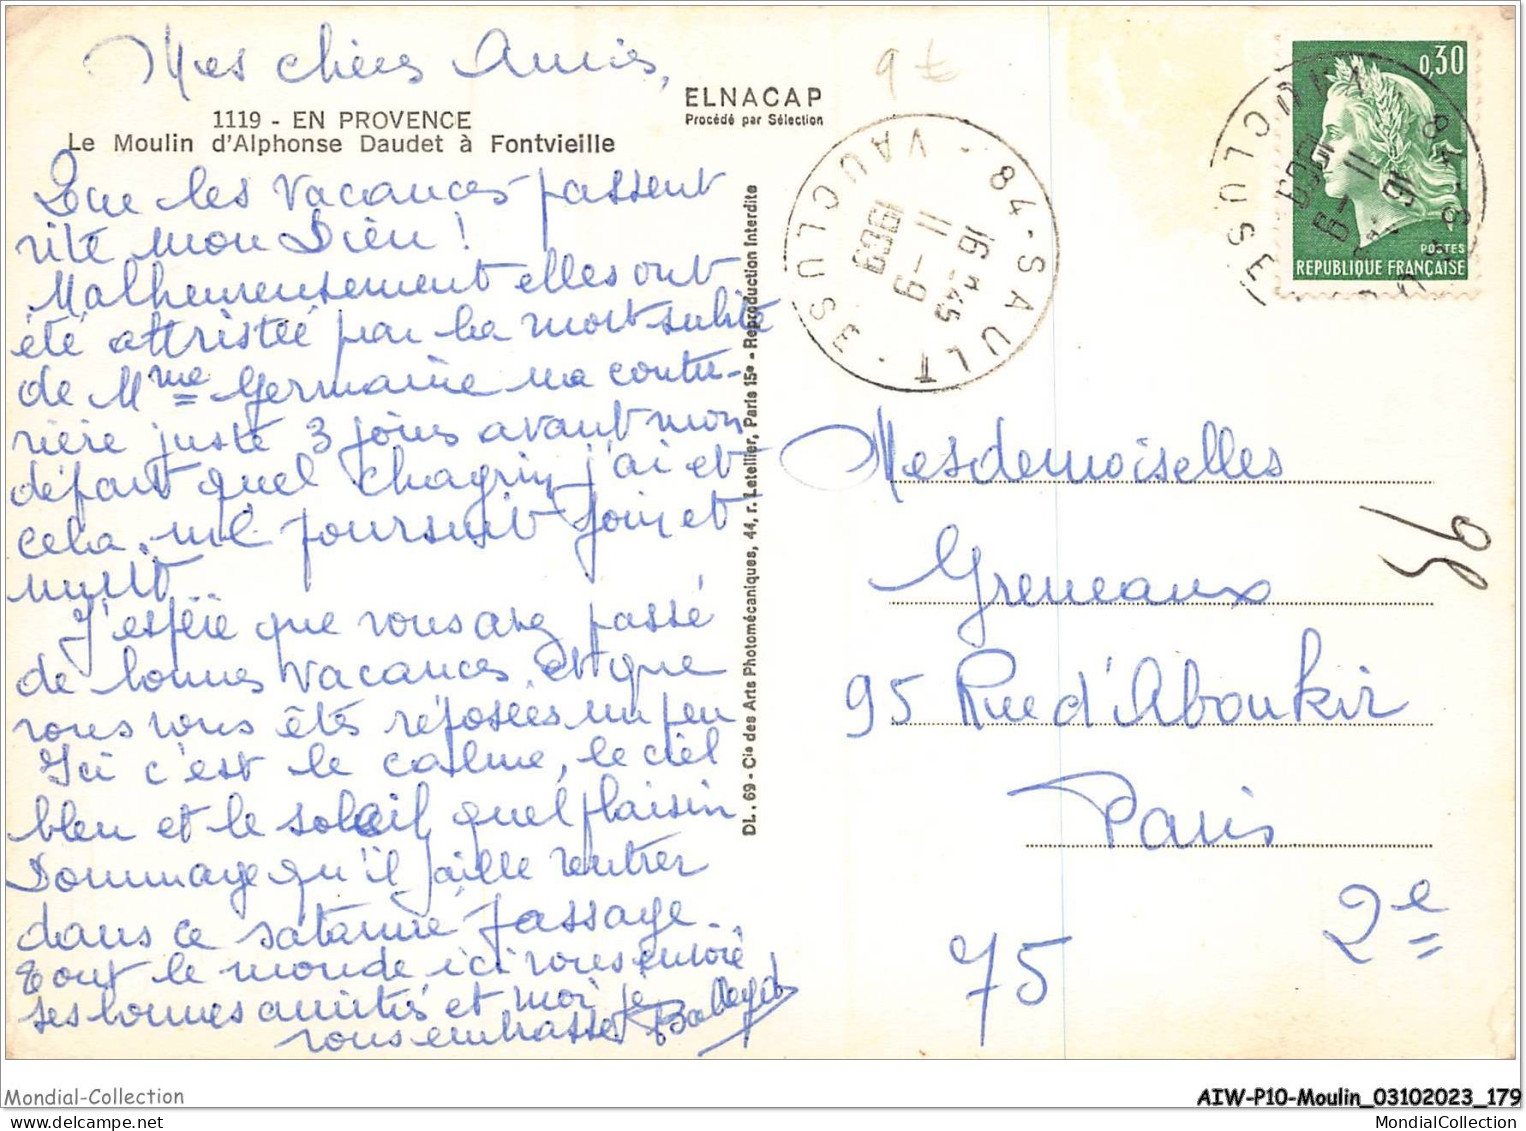 Mes chères Amies,
1119 - EN PROVENCE
Le Moulin d'Alphonse Daudet à Fontvieille
ELNACAP
Procédé par Sélection
Que les vacances passent
vite mon Dieu !
Malheureusement elles ont
été attristée par la mort subite
de Mme Germaine ma coutu-
rière juste 3 jours avant mon
départ quel chagrin j'ai et
cela me poursuit jour et
nuit
J'espère que vous avez passé
de bonnes vacances et que
vous vous êtes réposées un peu
Ici c'est le calme, le ciel
bleu et le soleil, quel plaisir
Dommage qu'il faille rentrer
dans ce satané passage.
Tout le monde ici vous envoie
ses bonnes amitiés et moi je
vous embrasse
DL. 69 - Cie des Arts Photomécaniques, 44, r. Letellier, Paris 15e - Reproduction Interdite
9 €
84 - SAULT - VAUCLUSE
16 H 45
11 - 9
1969
0,30
POSTES
REPUBLIQUE FRANÇAISE
Mesdemoiselles
Greneaux
95 Rue d'Aboukir
Paris
75 2e
95
Mondial-Collection
mondialcollection
AIW-P10-Moulin_03102023_179
MondialCollection